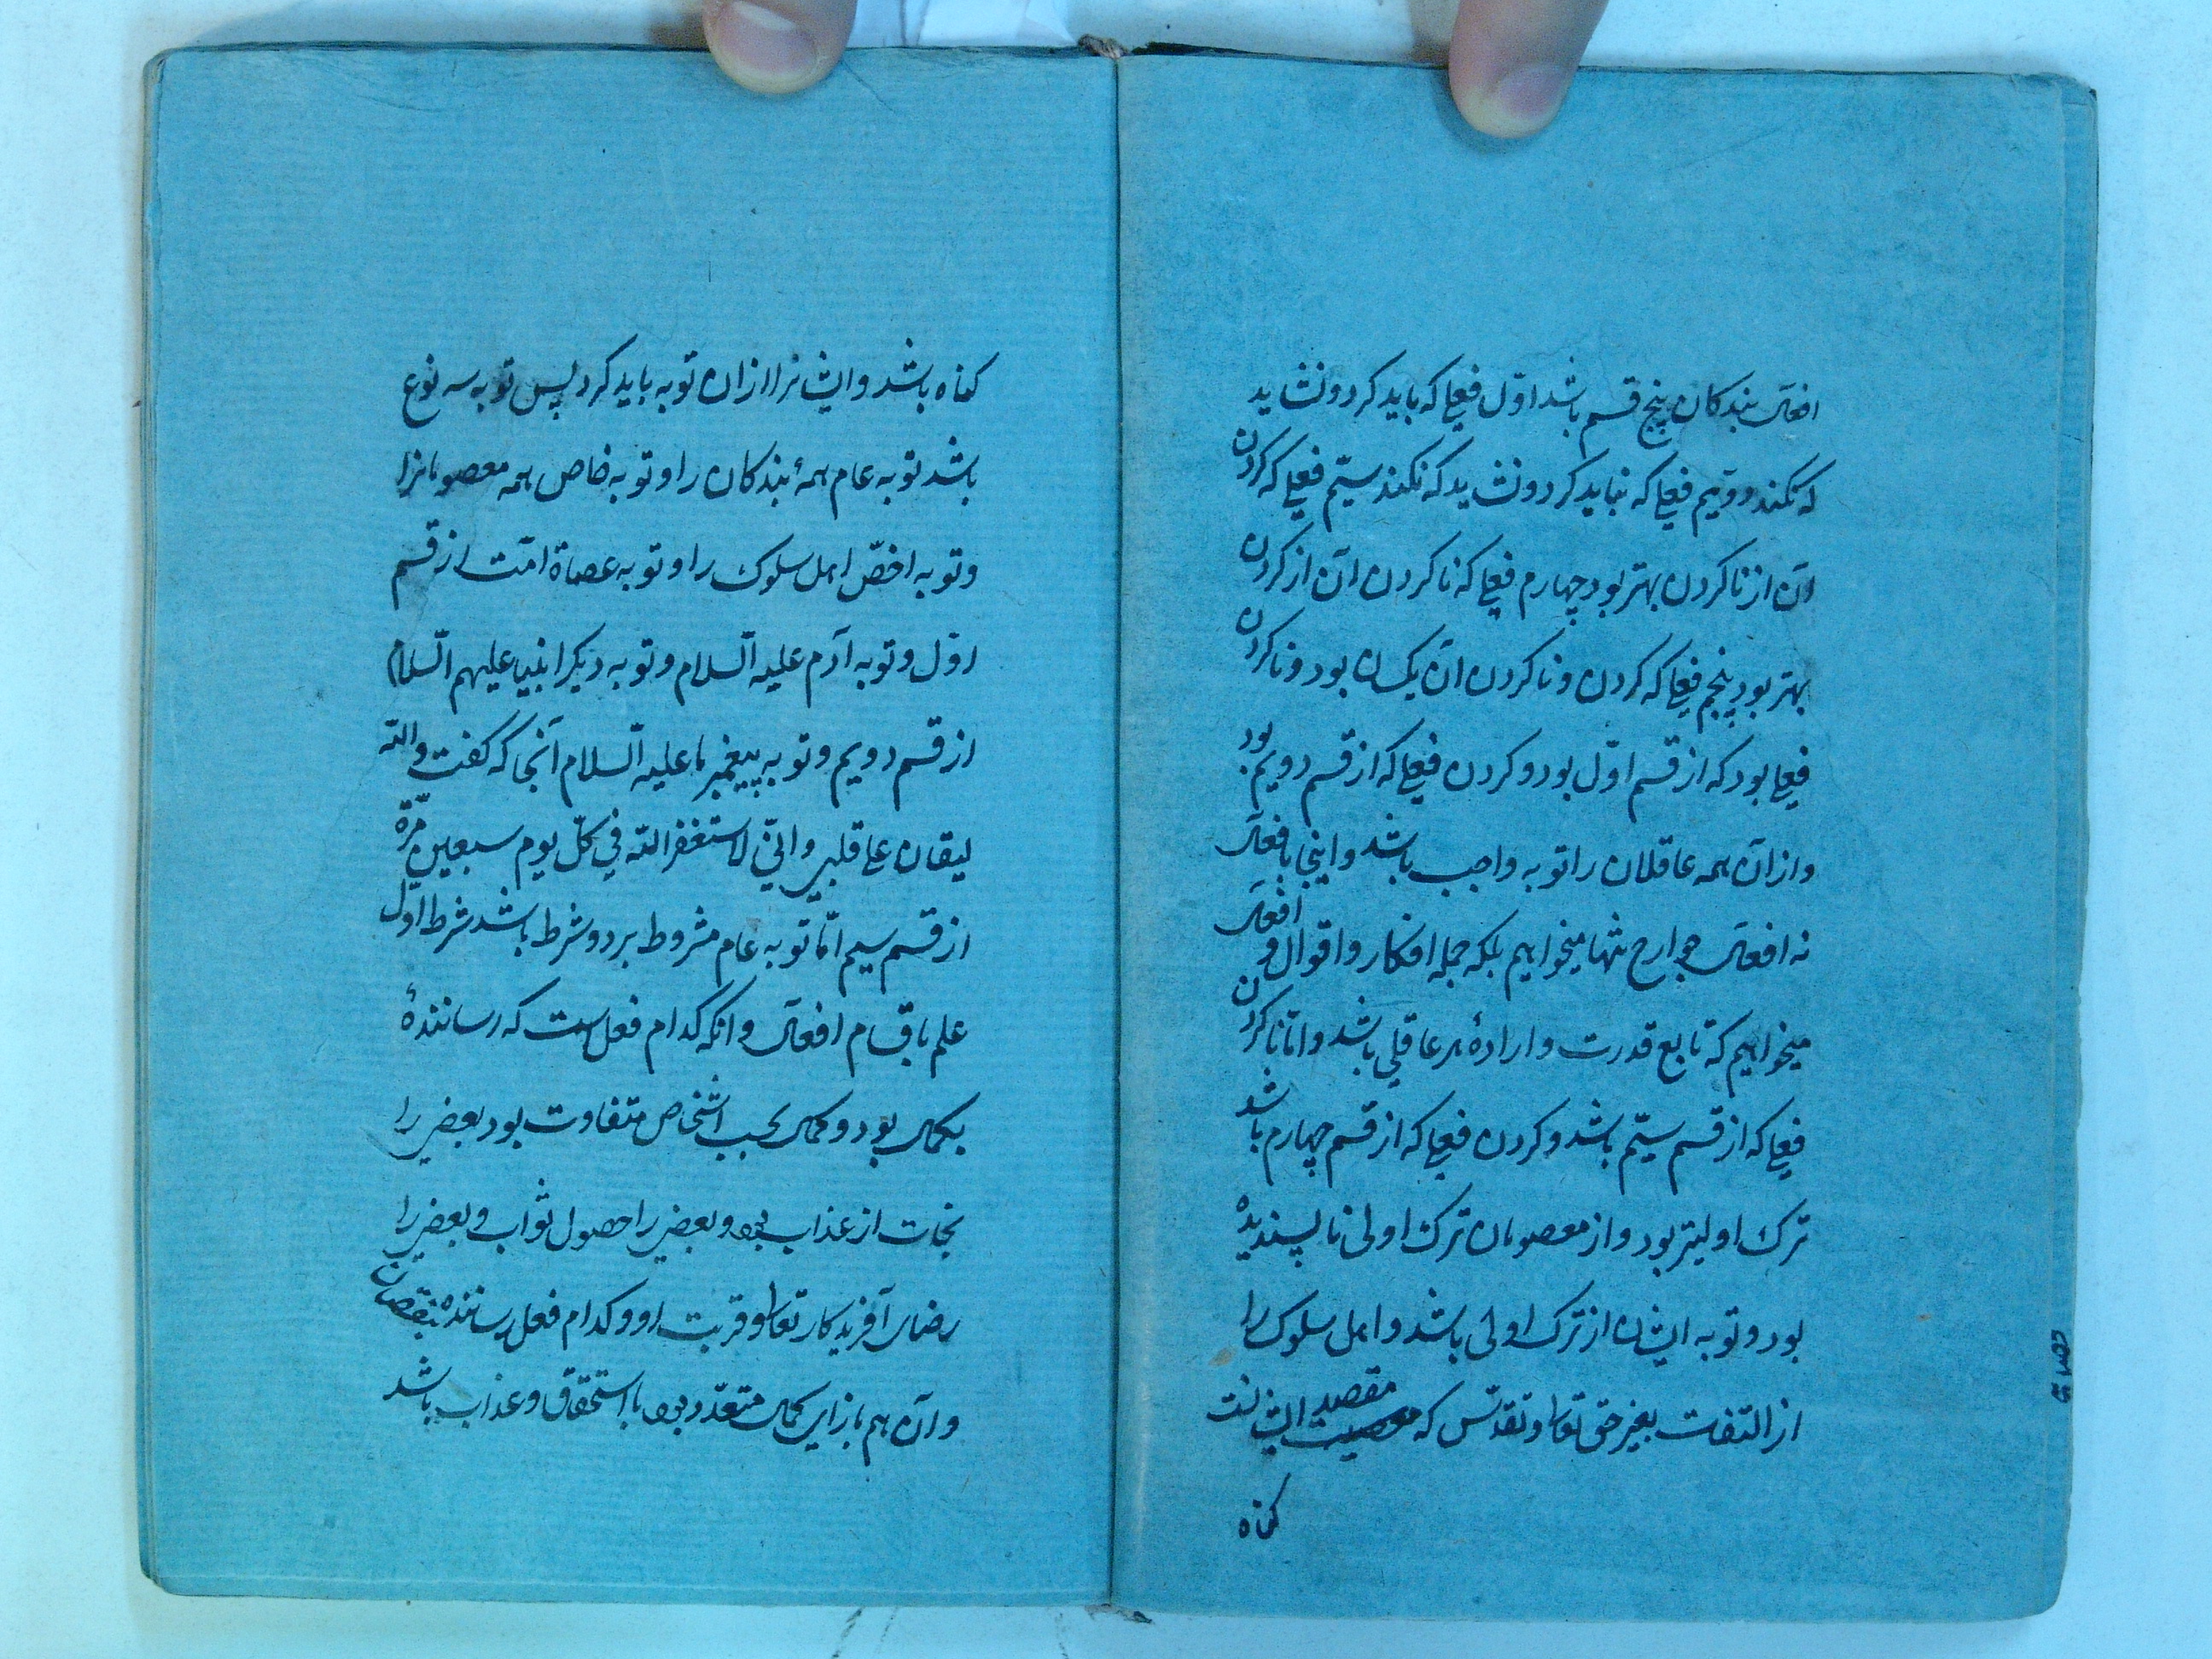 افعال بندکان پنج قسم باشد اوّل فعلی که باید کرد و نشاید
که نکنند دویّم فعلی که نباید کرد و نشاید که نکنند سیّم فعلی که کردن
آن از ناکردن بهتر بود چهارم فعلی که ناکردن آن از کردن
بهتر بود پنجم فعلی که کردن و ناکردن آن یکسان بود و ناکردن
فعلی بود که از قسم اوّل بود و کردن فعلی که از قسم دویم بود
و از آن همه عاقلان را توبه واجب باشد و اینجا بافعال
نه افعال جوارح تنها میخواهیم بلکه جمله افکار و اقوال و افعال
میخواهیم که تابع قدرت و ارادهٔ هر عاقلی باشد و امّا ناکردن
فعلی که از قسم سیّم باشد و کردن فعلی که از قسم چهارم باشد
ترک اولیتر بود و از معصومان ترک اولی ناپسندیده
بود و توبه ایشان از ترک اولی باشد و اهل سلوک را
از التفات بغیر حق تعالی و تقدّس که مقصد ایشانست
کناه
کناه باشد و ایشانرا از آن توبه باید کرد پس توبه سه نوع
باشد توبه عام همهٔ بندکان را و توبه خاص همه معصومانرا
و توبه اخصّ اهل سلوک را و توبه عصاة امّت از قسم
اوّل و توبه آدم علیه السّلام و توبه دیکر انبیا علیهم السّلام
از قسم دویم و توبه پیغمبر ما علیه السّلام آنجا که کفت و انّه
لیغان علی قلبی و انّی لاستغفر اللّه فی کلّ یوم سبعین مرّة
از قسم سیم امّا توبه عام مشروط بر دو شرط باشد شرط اول
علم باقسام افعال و آنکه کدام فعل است که رسانندهٔ
بکمال بود و کمال بحسب اشخاص متفاوت بود بعضی را
نجات از عذاب بود و بعضی را حصول ثواب و بعضی را
رضای آفریدکار تعالی و قربت او و کدام فعل رساننده بنقصان
و آن هم بازای کمال متعدّد بود یا استحقاق و عذاب باشد